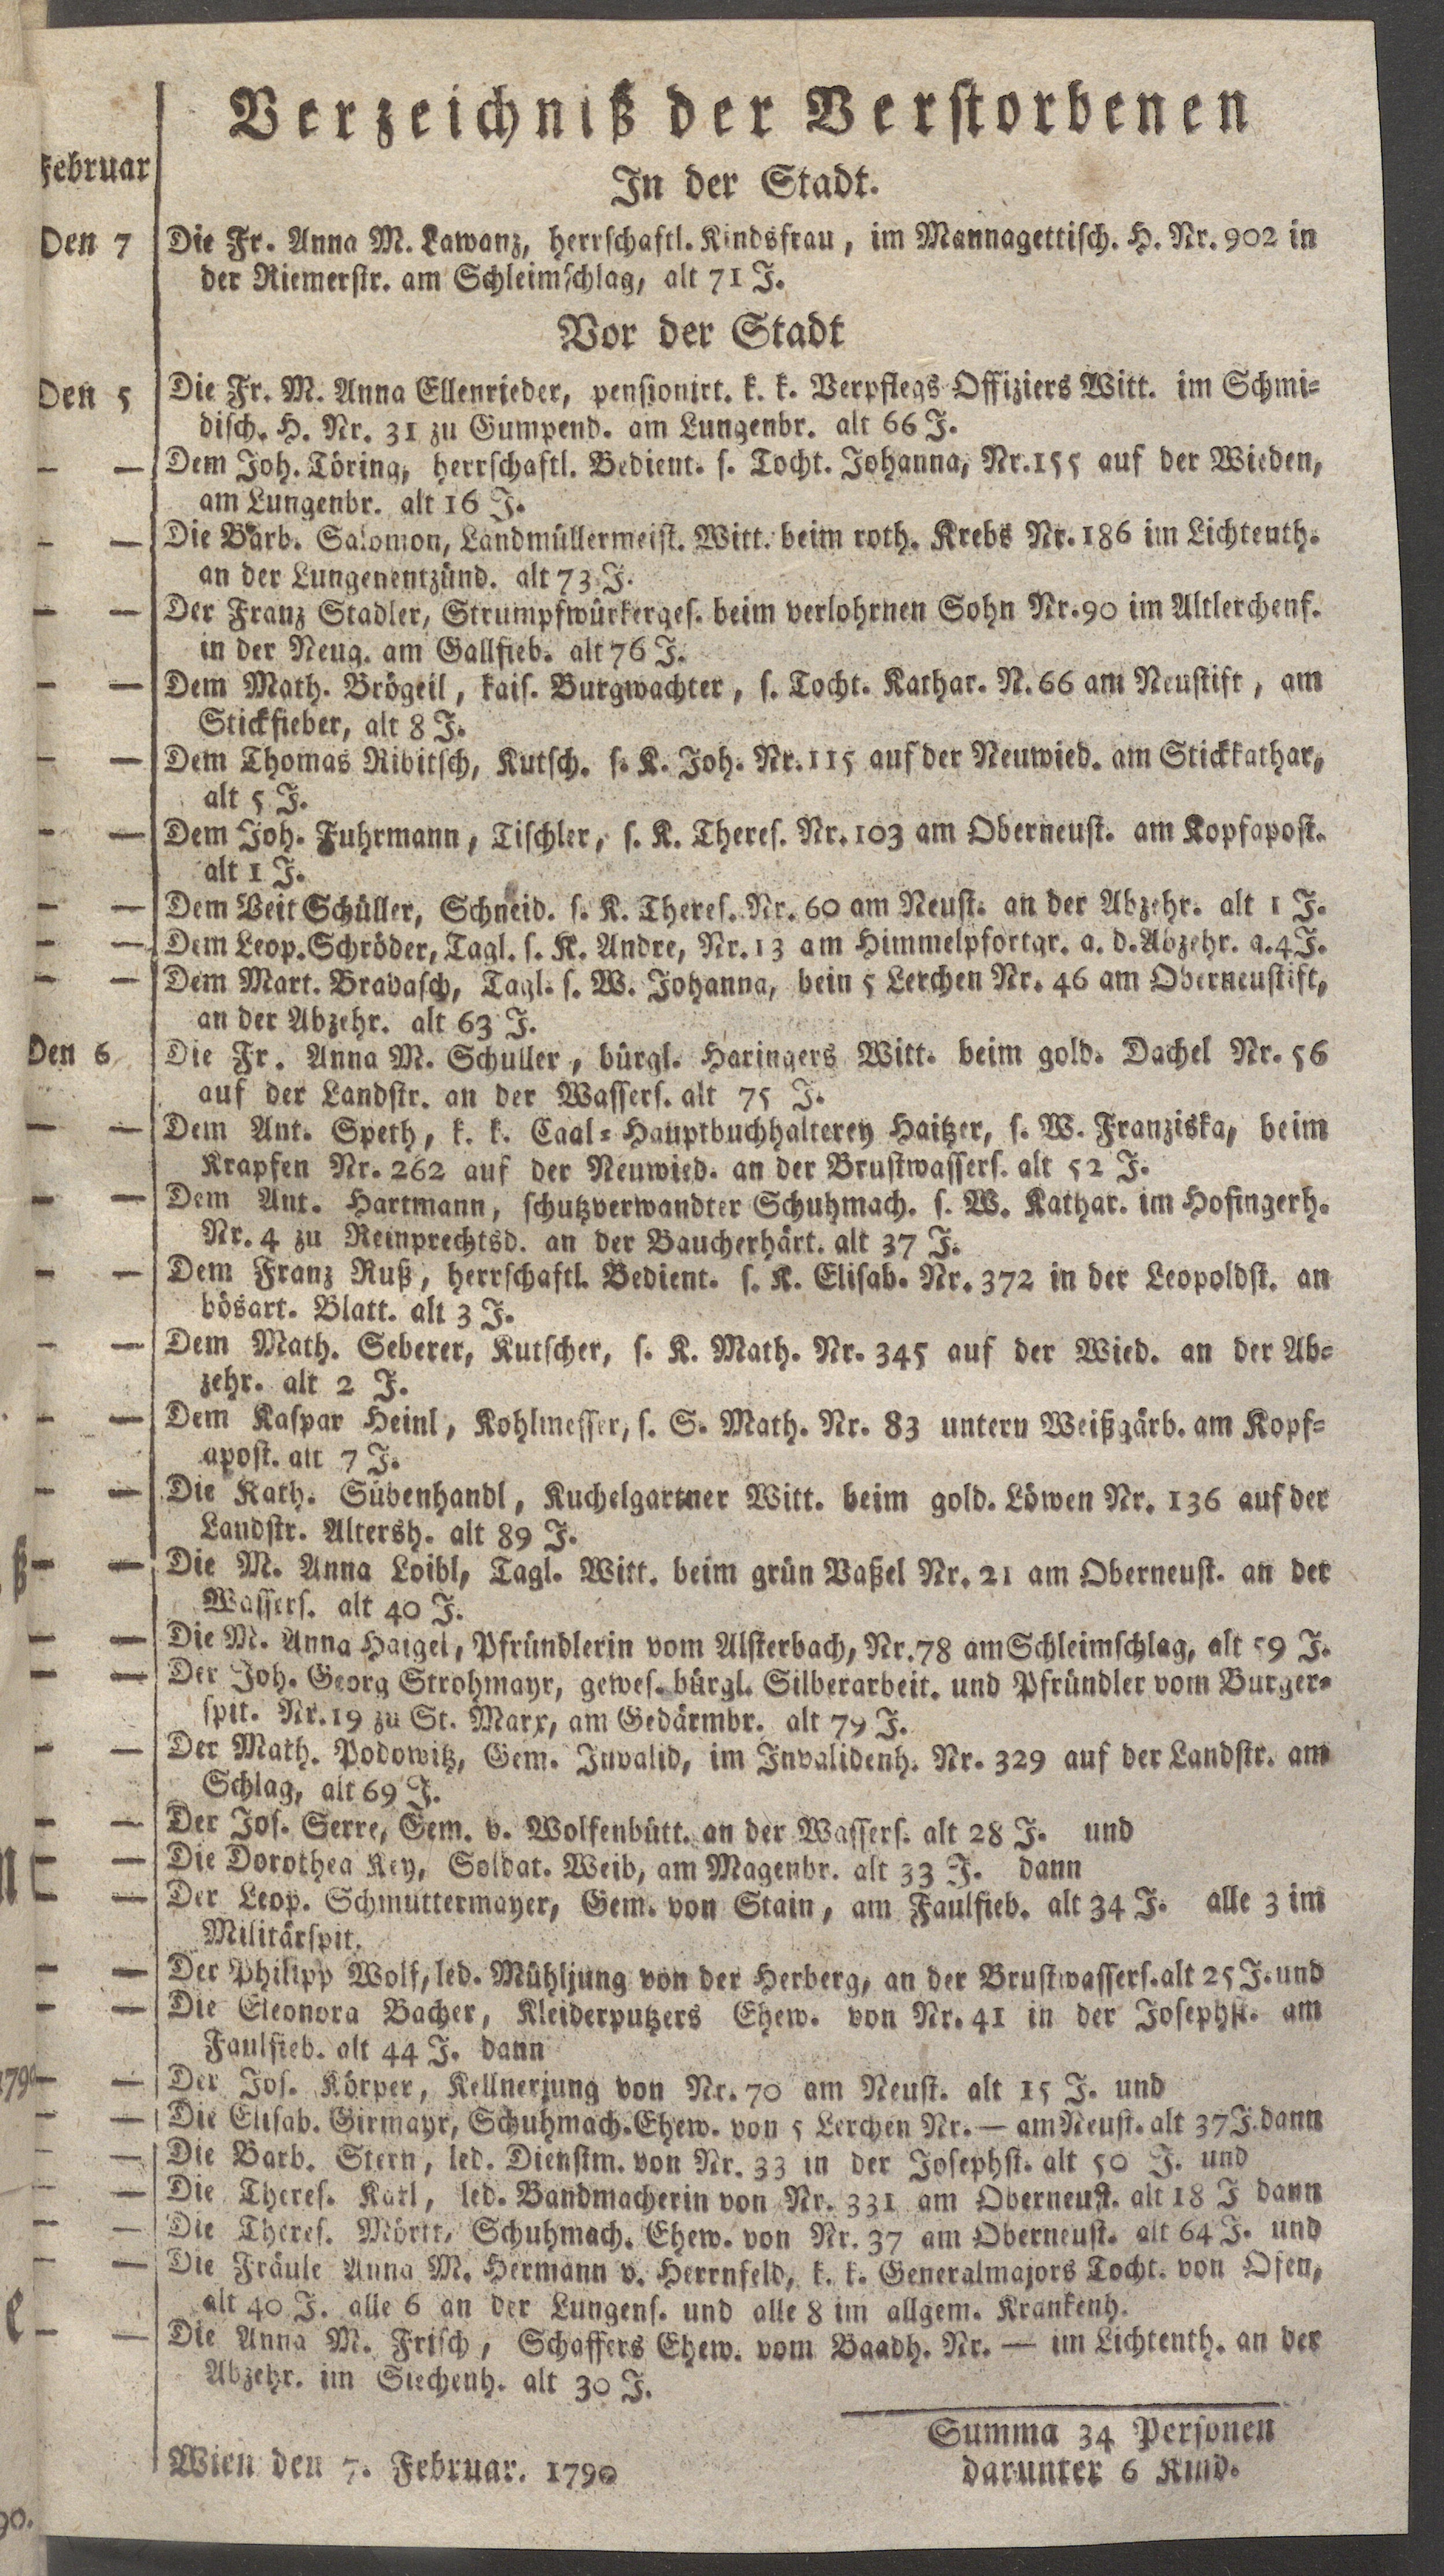 Verzeichniß der Verstorbenen
Februar
In der Stadt.
Den 7 Die Fr. Anna M. Lawanz, herrschaftl. Kindsfrau, im Mannagettisch. H. Nr. 902 in
der Riemerstr. am Schleimschlag, alt 71 J.
Vor der Stadt
Den 5 Die Fr. M. Anna Ellenrieder, pensionirt. k. k. Verpflegs Offiziers Witt. im Schmi-
disch. H. Nr. 31 zu Gumpend. am Lungenbr. alt 66 J.
— — Dem Joh. Töring, herrschaftl. Bedient. s. Tocht. Johanna, Nr. 155 auf der Wieden,
am Lungenbr. alt 16 J.
— — Die Barb. Salomon, Landmüllermeist. Witt. beim roth. Krebs Nr. 186 im Lichtenth.
an der Lungenentzünd. alt 73 J.
— — Der Franz Stadler, Strumpfwürkerges. beim verlohrnen Sohn Nr. 90 im Altlerchenf.
in der Neug. am Gallfieb. alt 76 J.
— — Dem Math. Brögeil, kais. Burgwachter, s. Tocht. Kathar. N. 66 am Neustift, am
Stickfieber, alt 8 J.
— — Dem Thomas Ribitsch, Kutsch. s. K. Joh. Nr. 115 auf der Neuwied. am Stickkathar,
alt 5 J.
— — Dem Joh. Fuhrmann, Tischler, s. K. Theres. Nr. 103 am Oberneust. am Kopfapost.
alt 1 J.
— — Dem Veit Schüller, Schneid. s. K. Theres. Nr. 60 am Neust. an der Abzehr. alt 1 J.
— — Dem Leop. Schröder, Tagl. s. K. Andre, Nr. 13 am Himmelpfortgr. a. d. Abzehr. a. 4 J.
— — Dem Mart. Bravasch, Tagl. s. W. Johanna, bein 5 Lerchen Nr. 46 am Oberneustift,
an der Abzehr. alt 63 J.
Den 6 Die Fr. Anna M. Schuller, bürgl. Haringers Witt. beim gold. Dachel Nr. 56
auf der Landstr. an der Wassers. alt 75 J.
— — Dem Ant. Speth, k. k. Caal-Hauptbuchhalterey Haitzer, s. W. Franziska, beim
Krapfen Nr. 262 auf der Neuwied. an der Brustwassers. alt 52 J.
— — Dem Ant. Hartmann, schutzverwandter Schuhmach. s. W. Kathar. im Hofingerh.
Nr. 4 zu Reinprechtsd. an der Baucherhärt. alt 37 J.
— — Dem Franz Ruß, herrschaftl. Bedient. s. K. Elisab. Nr. 372 in der Leopoldst. an
bösart. Blatt. alt 3 J.
— — Dem Math. Seberer, Kutscher, s. K. Math. Nr. 345 auf der Wied. an der Ab-
zehr. alt 2 J.
— — Dem Kaspar Heinl, Kohlmesser, s. S. Math. Nr. 83 untern Weißgärb. am Kopf-
apost. alt 7 J.
— — Die Kath. Sübenhandl, Kuchelgartner Witt. beim gold. Löwen Nr. 136 auf der
Landstr. Altersh. alt 89 J.
— — Die M. Anna Loibl, Tagl. Witt. beim grün Vaßel Nr. 21 am Oberneust. an der
Wassers. alt 40 J.
— — Die M. Anna Haigel, Pfründlerin vom Alsterbach, Nr. 78 am Schleimschlag, alt 59 J.
— — Der Joh. Georg Strohmayr, gewes. bürgl. Silberarbeit. und Pfründler vom Burger-
spit. Nr. 19 zu St. Marx, am Gedärmbr. alt 79 J.
— — Der Math. Podowitz, Gem. Invalid, im Invalidenh. Nr. 329 auf der Landstr. am
Schlag, alt 69 J.
— — Der Jos. Serre, Gem. v. Wolfenbütt. an der Wassers. alt 28 J. und
— — Die Dorothea Key, Soldat. Weib, am Magenbr. alt 33 J. dann
— — Der Leop. Schmuttermayer, Gem. von Stain, am Faulfieb. alt 34 J. alle 3 im
Militärspit.
— — Der Philipp Wolf, led. Mühljung von der Herberg, an der Brustwassers. alt 25 J. und
— — Die Eleonora Bacher, Kleiderputzers Ehew. von Nr. 41 in der Josephst. am
Faulfieb. alt 44 J. dann
— — Der Jos. Körper, Kellnerjung von Nr. 70 am Neust. alt 15 J. und
— — Die Elisab. Girmayr, Schuhmach. Ehew. von 5 Lerchen Nr. — am Neust. alt 37 J. dann
— — Die Barb. Stern, led. Dienstm. von Nr. 33 in der Josephst. alt 50 J. und
— — Die Theres. Karl, led. Bandmacherin von Nr. 331 am Oberneust. alt 18 J dann
— — Die Theres. Mörtt, Schuhmach. Ehew. von Nr. 37 am Oberneust. alt 64 J. und
— — Die Fräule Anna M. Hermann v. Herrnfeld, k. k. Generalmajors Tocht. von Ofen,
alt 40 J. alle 6 an der Lungens. und alle 8 im allgem. Krankenh.
— — Die Anna M. Frisch, Schaffers Ehew. vom Baadh. Nr. — im Lichtenth. an der
Abzehr. im Siechenh. alt 30 J.
Summa 34 Personen
darunter 6 Kind.
Wien den 7. Februar. 1790